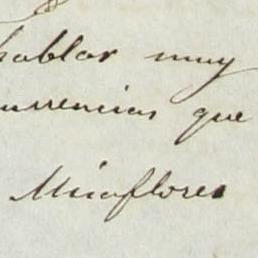 hablar muy
urrencias que
Miraflores